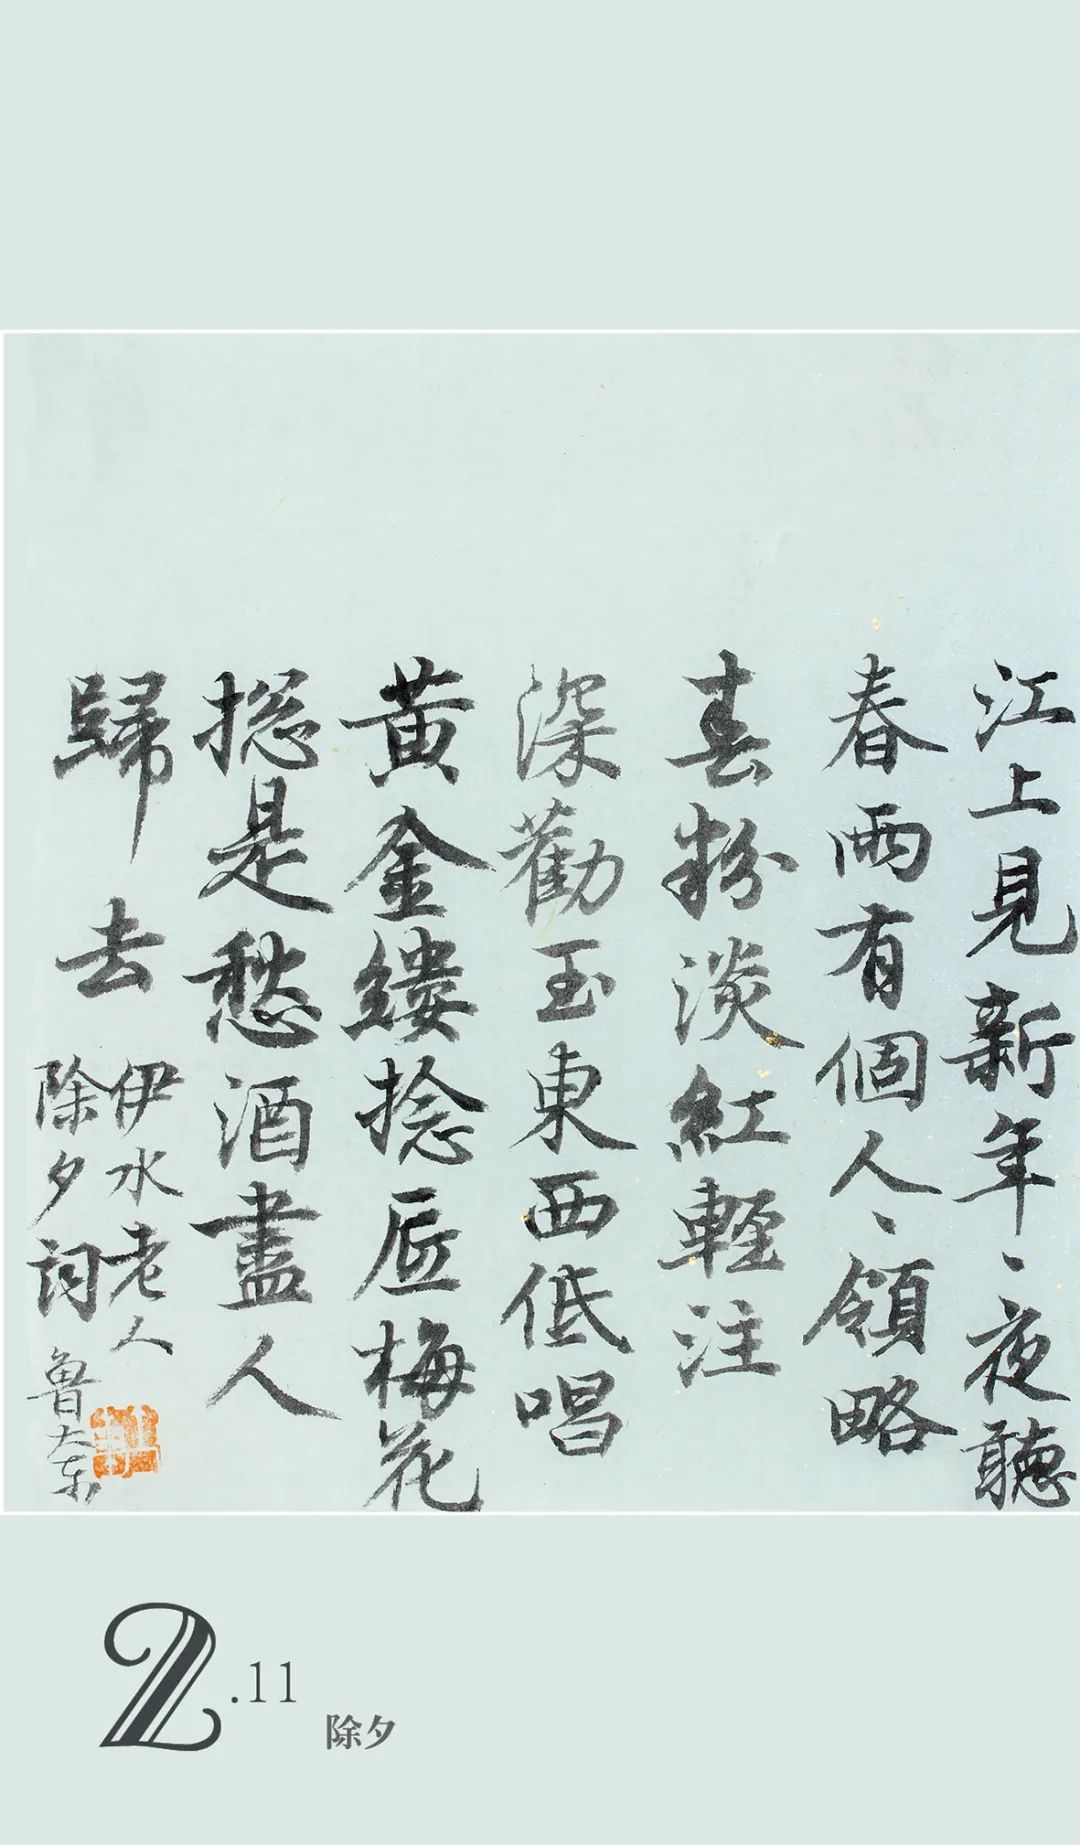 江上見新年、夜聽
春雨有個人、領略
春粉淡紅輕注
深勸玉東西低唱
黄金縷捻底梅花
捴是愁酒盡人
歸去
伊水老人
除夕詞
魯大东
2.11
除夕